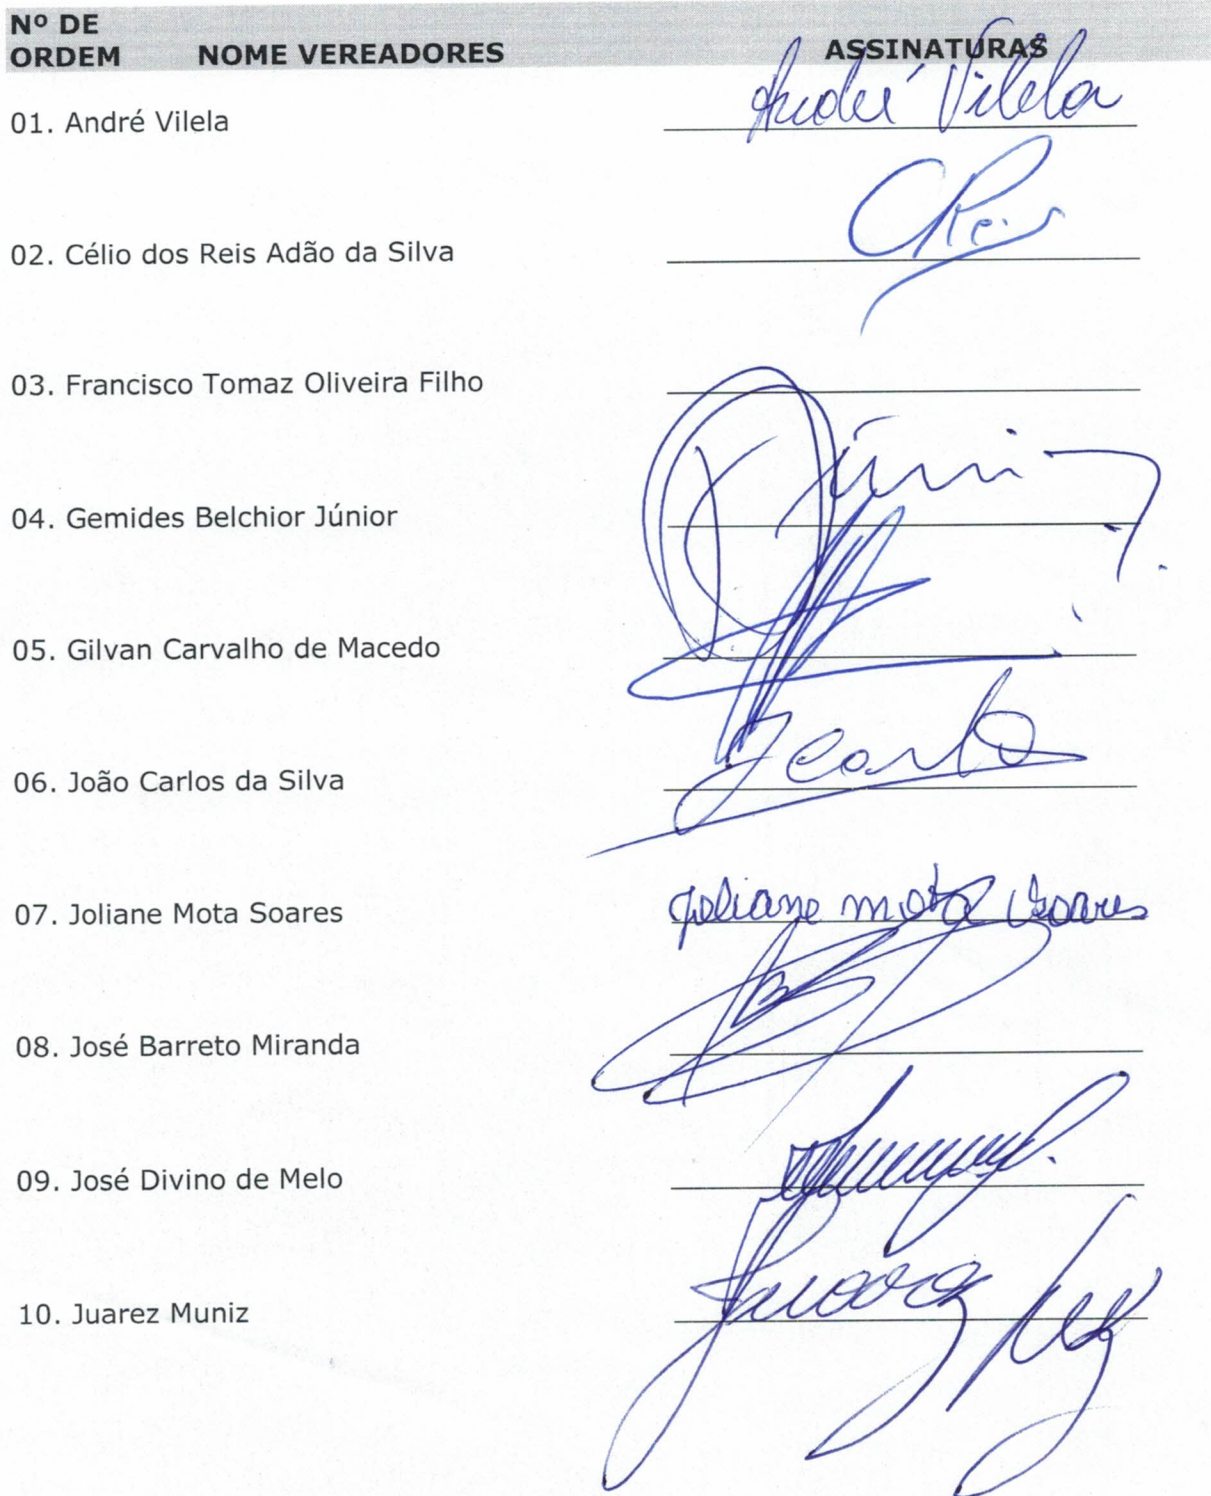 Nº DE
ORDEM NOME VEREADORES ASSINATURAS
01. André Vilela André Vilela
02. Célio dos Reis Adão da Silva CReis
03. Francisco Tomaz Oliveira Filho
04. Gemides Belchior Júnior Júnior
05. Gilvan Carvalho de Macedo
06. João Carlos da Silva JCarlos
07. Joliane Mota Soares Joliane Mota Soares
08. José Barreto Miranda
09. José Divino de Melo
10. Juarez Muniz Juarez